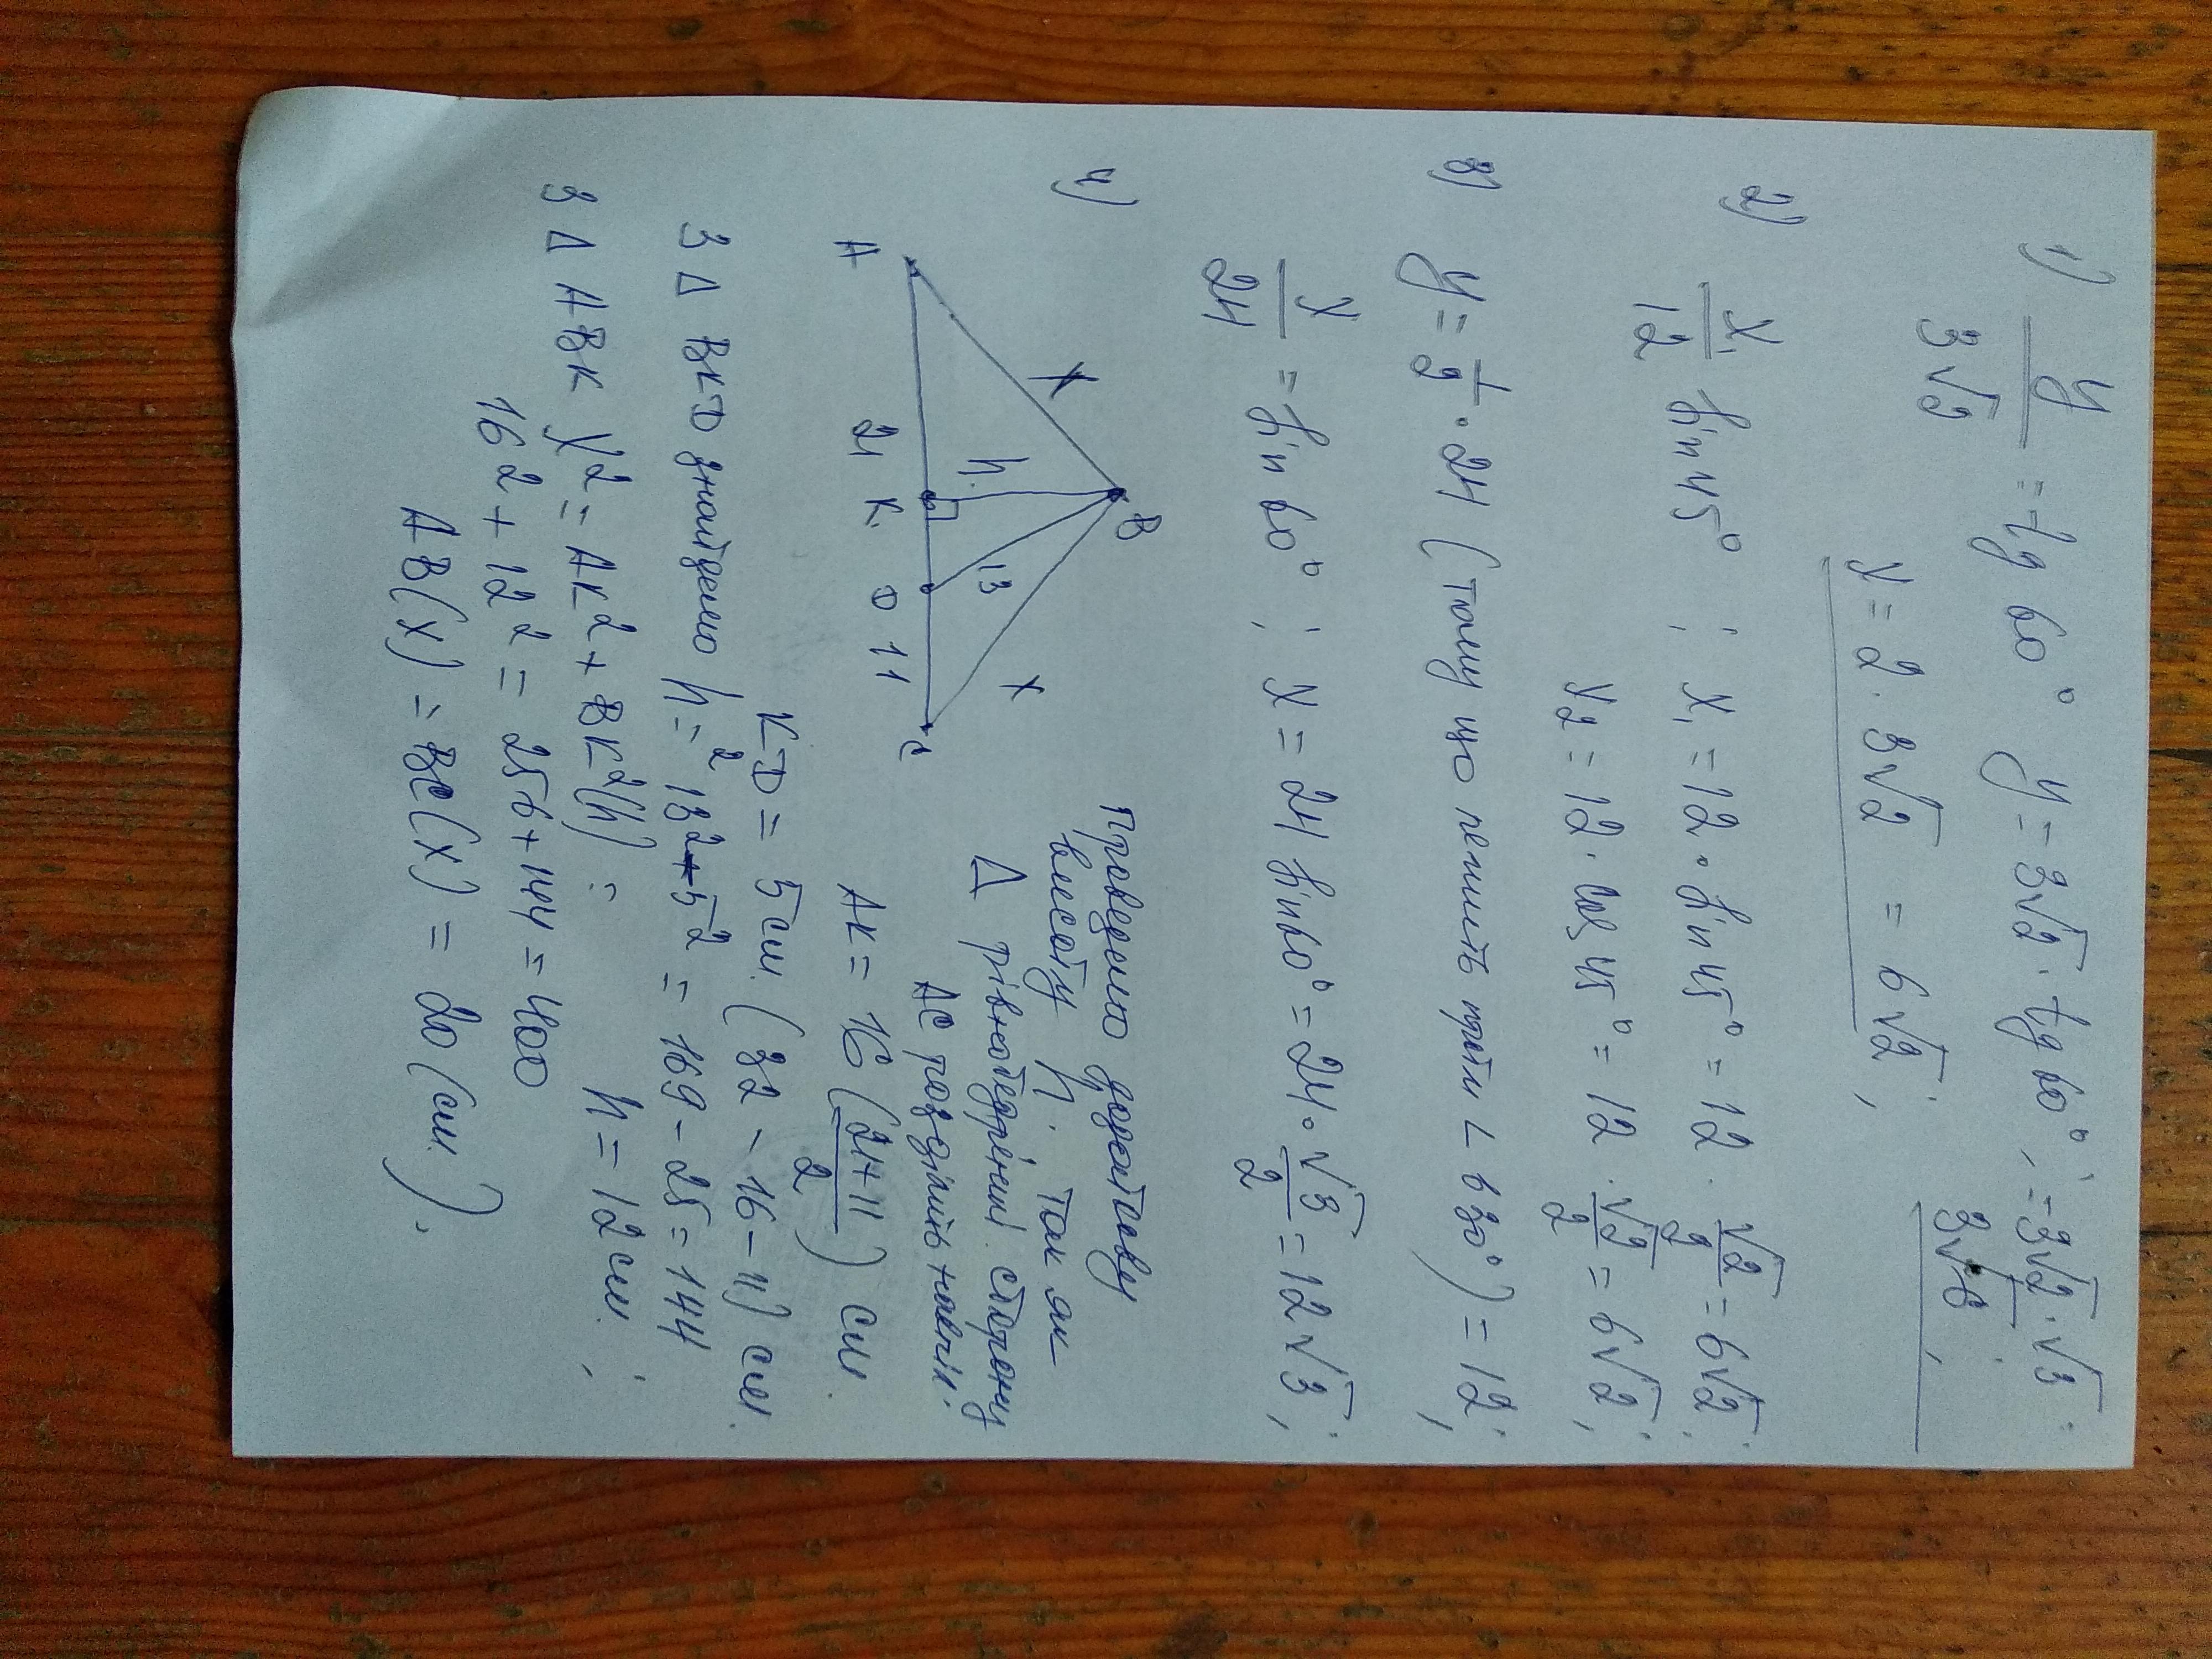 1) y/3√2 = tg 60° y = 3√2 · tg 60°; = 3√2 · √3;
3√6;
x = 2 · 3√2 = 6√2;
2) x₁/12 sin 45° ; x₁ = 12 · sin 45° = 12 · √2/2 = 6√2;
x₂ = 12 · cos 45° = 12 · √2/2 = 6√2;
3) y = 1/2 · 24 (тому що лежить проти ∠ в 30°) = 12;
x/24 = sin 60° ; x = 24 sin 60° = 24 · √3/2 = 12√3;
4)
B
x
h
13
x
A 21 K D 11 C
Проведемо додаткову
висоту h. Так як
Δ рівнобедрений. сторону
AC розділить навпіл.
AK = 16 (21+11/2) см.
KD = 5 см. (32 - 16 - 11) см.
З Δ BKD знайдемо h² = 13² - 5² = 169 - 25 = 144
h = 12 см. ;
З Δ ABK x² = AK² + BK²(h) ;
16² + 12² = 256 + 144 = 400
AB(x) = BC(x) = 20 (см.).